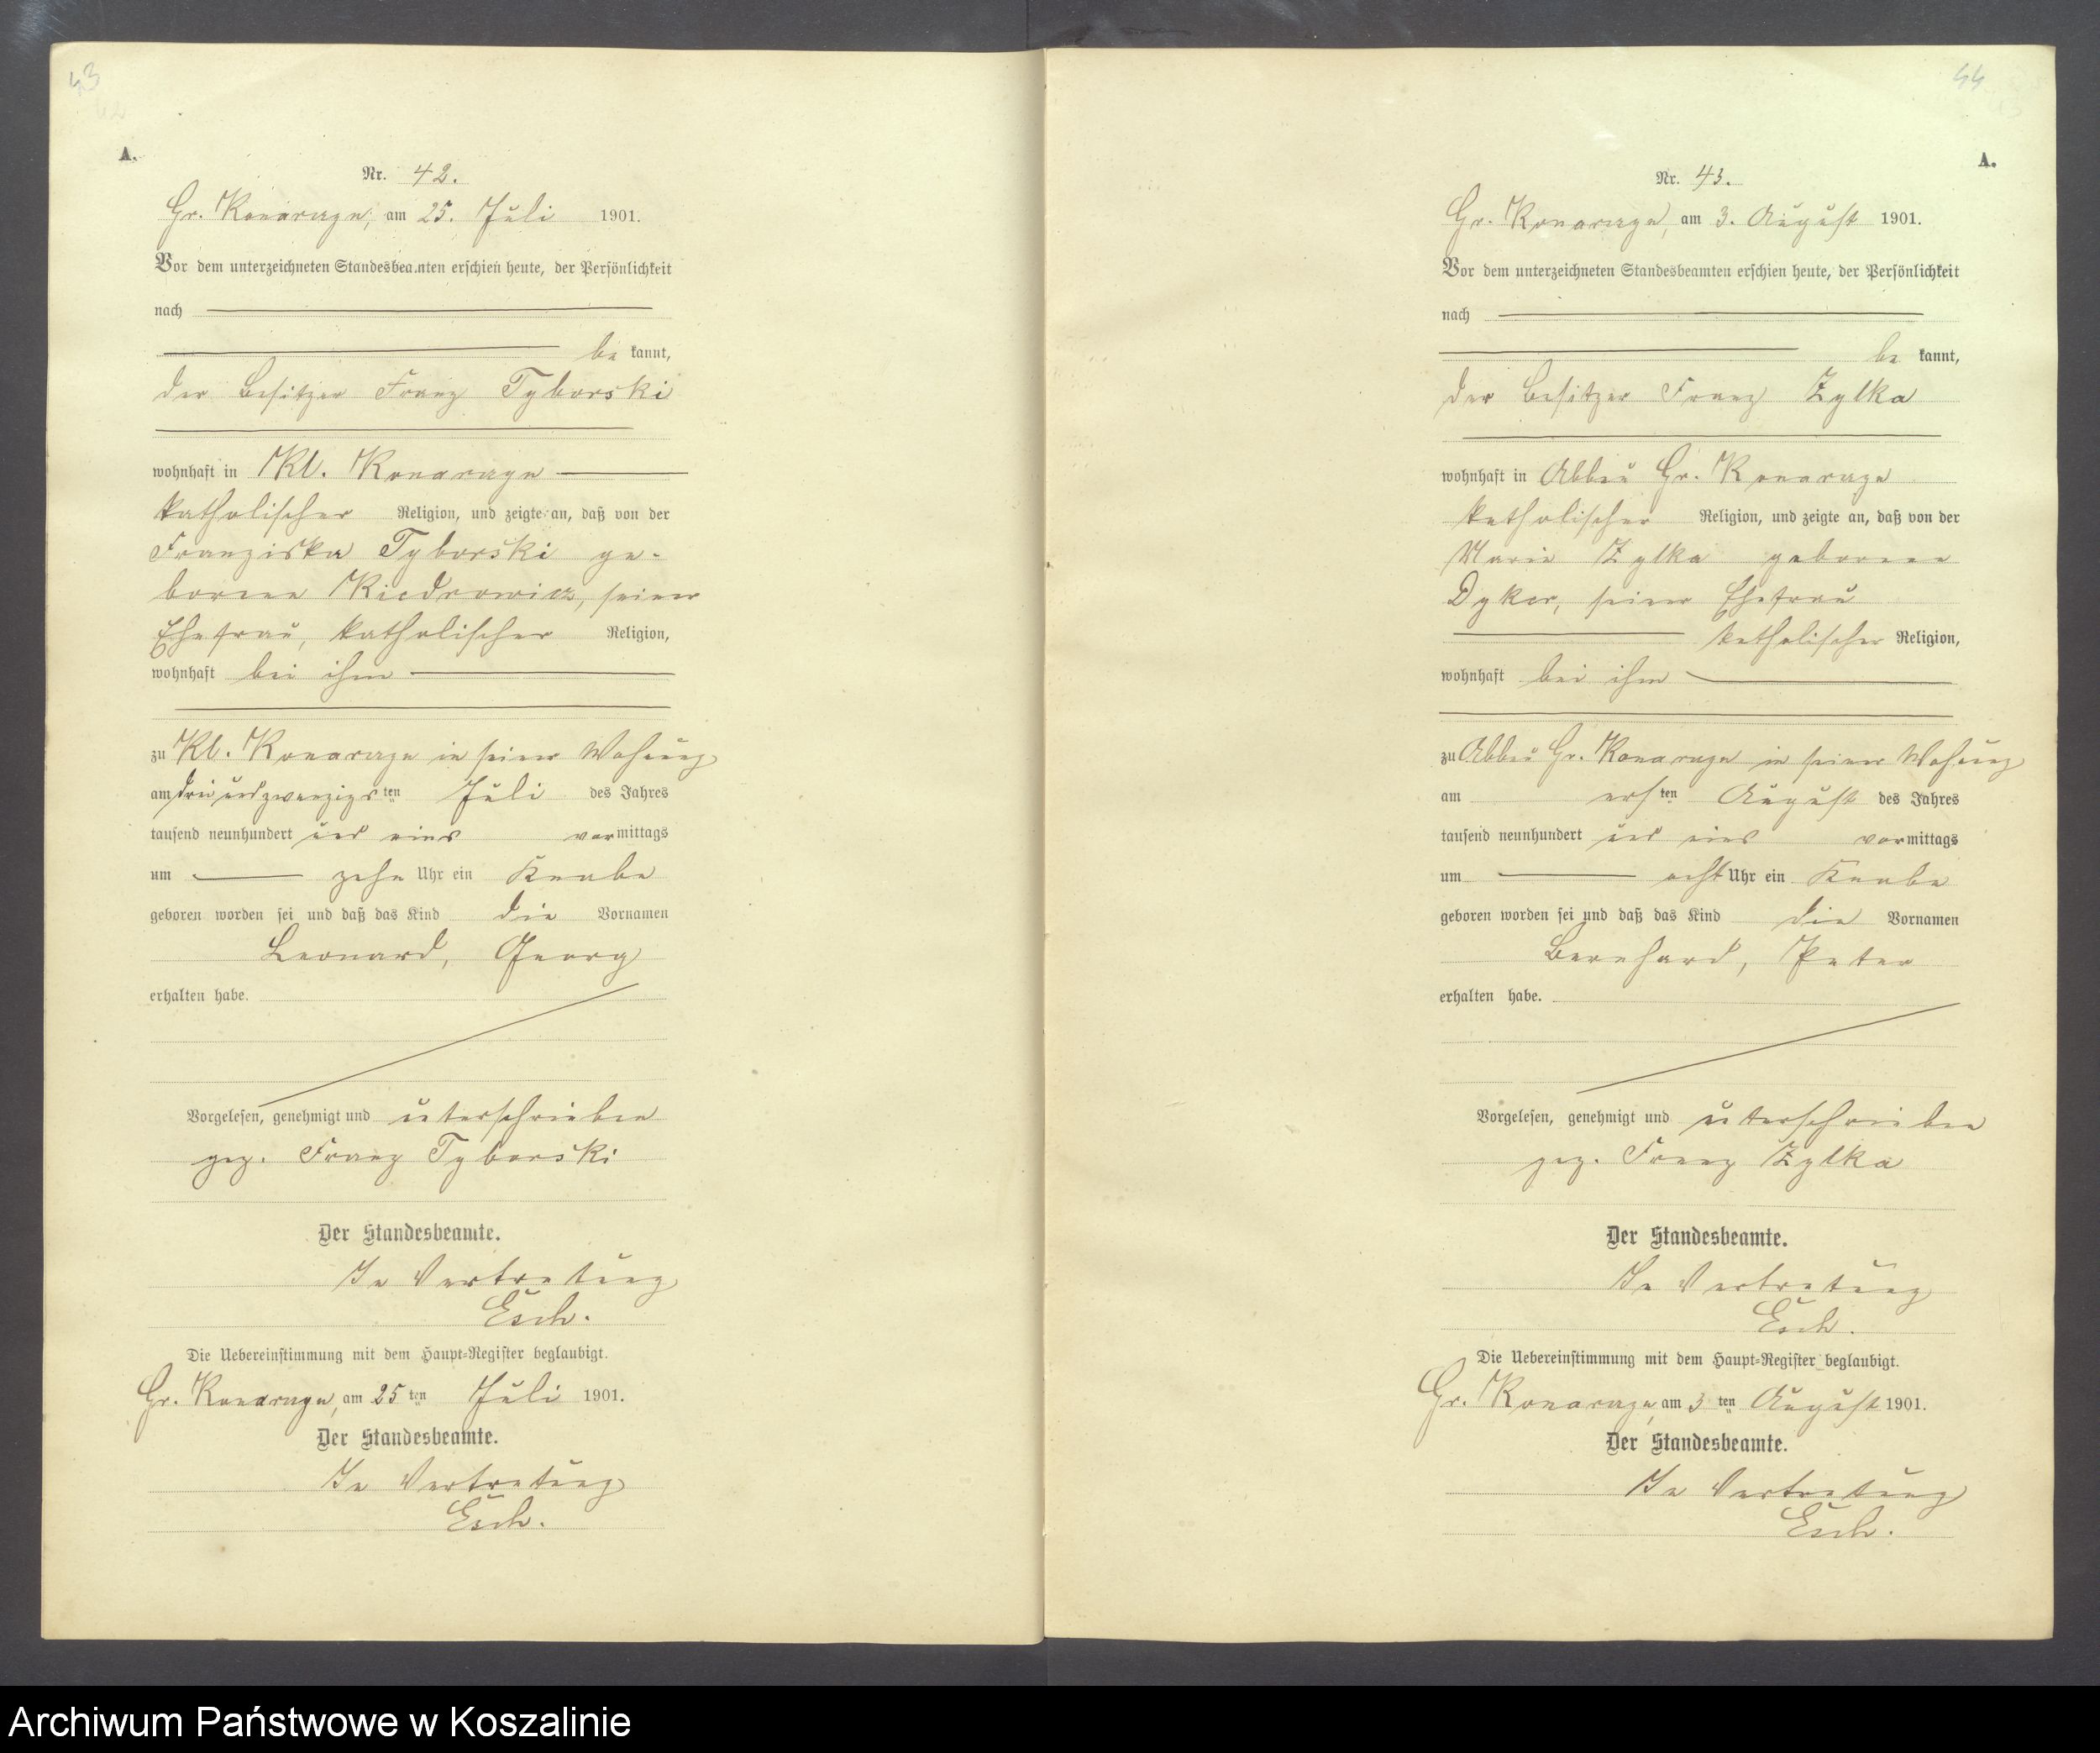 43
A.
Nr. 42.
Gr. Konarczyn, am 25. Juli 1901.
Vor dem unterzeichneten Standesbeamten erschien heute, der Persönlichkeit
nach
be kannt,
der Besitzer Franz Tyborski
wohnhaft in Kl. Konarczyn
katholischer Religion, und zeigte an, daß von der
Franziska Tyborski ge-
borene Kiedrowicz, seiner
Ehefrau, katholischer Religion,
wohnhaft bei ihm
zu Kl. Konarczyn in seiner Wohung
am dreiundzwanzigsten Juli des Jahres
tausend neunhundert und eins vormittags
um zehn Uhr ein Knabe
geboren worden sei und daß das Kind die Vornamen
Leonard, Georg
erhalten habe.
Vorgelesen, genehmigt und unterschrieben
gez. Franz Tyborski
Der Standesbeamte.
In Vertretung
Esch.
Die Uebereinstimmung mit dem Haupt-Register beglaubigt.
Gr. Konarczyn, am 25ten Juli 1901.
Der Standesbeamte.
In Vertretung
Esch.
44
A.
Nr. 43.
Gr. Konarczyn, am 3. August 1901.
Vor dem unterzeichneten Standesbeamten erschien heute, der Persönlichkeit
nach
be kannt,
der Besitzer Franz Zylka
wohnhaft in Abbau Gr. Konarczyn
katholischer Religion, und zeigte an, daß von der
Marie Zylka geborene
Dyker, seiner Ehefrau
katholischer Religion,
wohnhaft bei ihm
zu Abbau Gr. Konarczyn in seiner Wohung
am ersten August des Jahres
tausend neunhundert und eins vormittags
um acht Uhr ein Knabe
geboren worden sei und daß das Kind die Vornamen
Bernhard, Peter
erhalten habe.
Vorgelesen, genehmigt und unterschrieben
gez. Franz Zylka
Der Standesbeamte.
In Vertretung
Esch.
Die Uebereinstimmung mit dem Haupt-Register beglaubigt.
Gr. Konarczyn, am 3ten August 1901.
Der Standesbeamte.
In Vertretung
Esch.
Archiwum Państwowe w Koszalinie